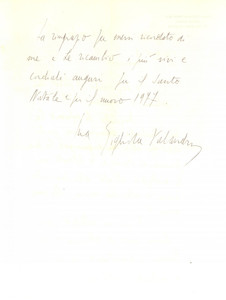 La ringrazio per essersi ricordato di
me e le ricambio i più vivi e
cordiali auguri per il Santo
Natale e per il nuovo 1997.
Sua